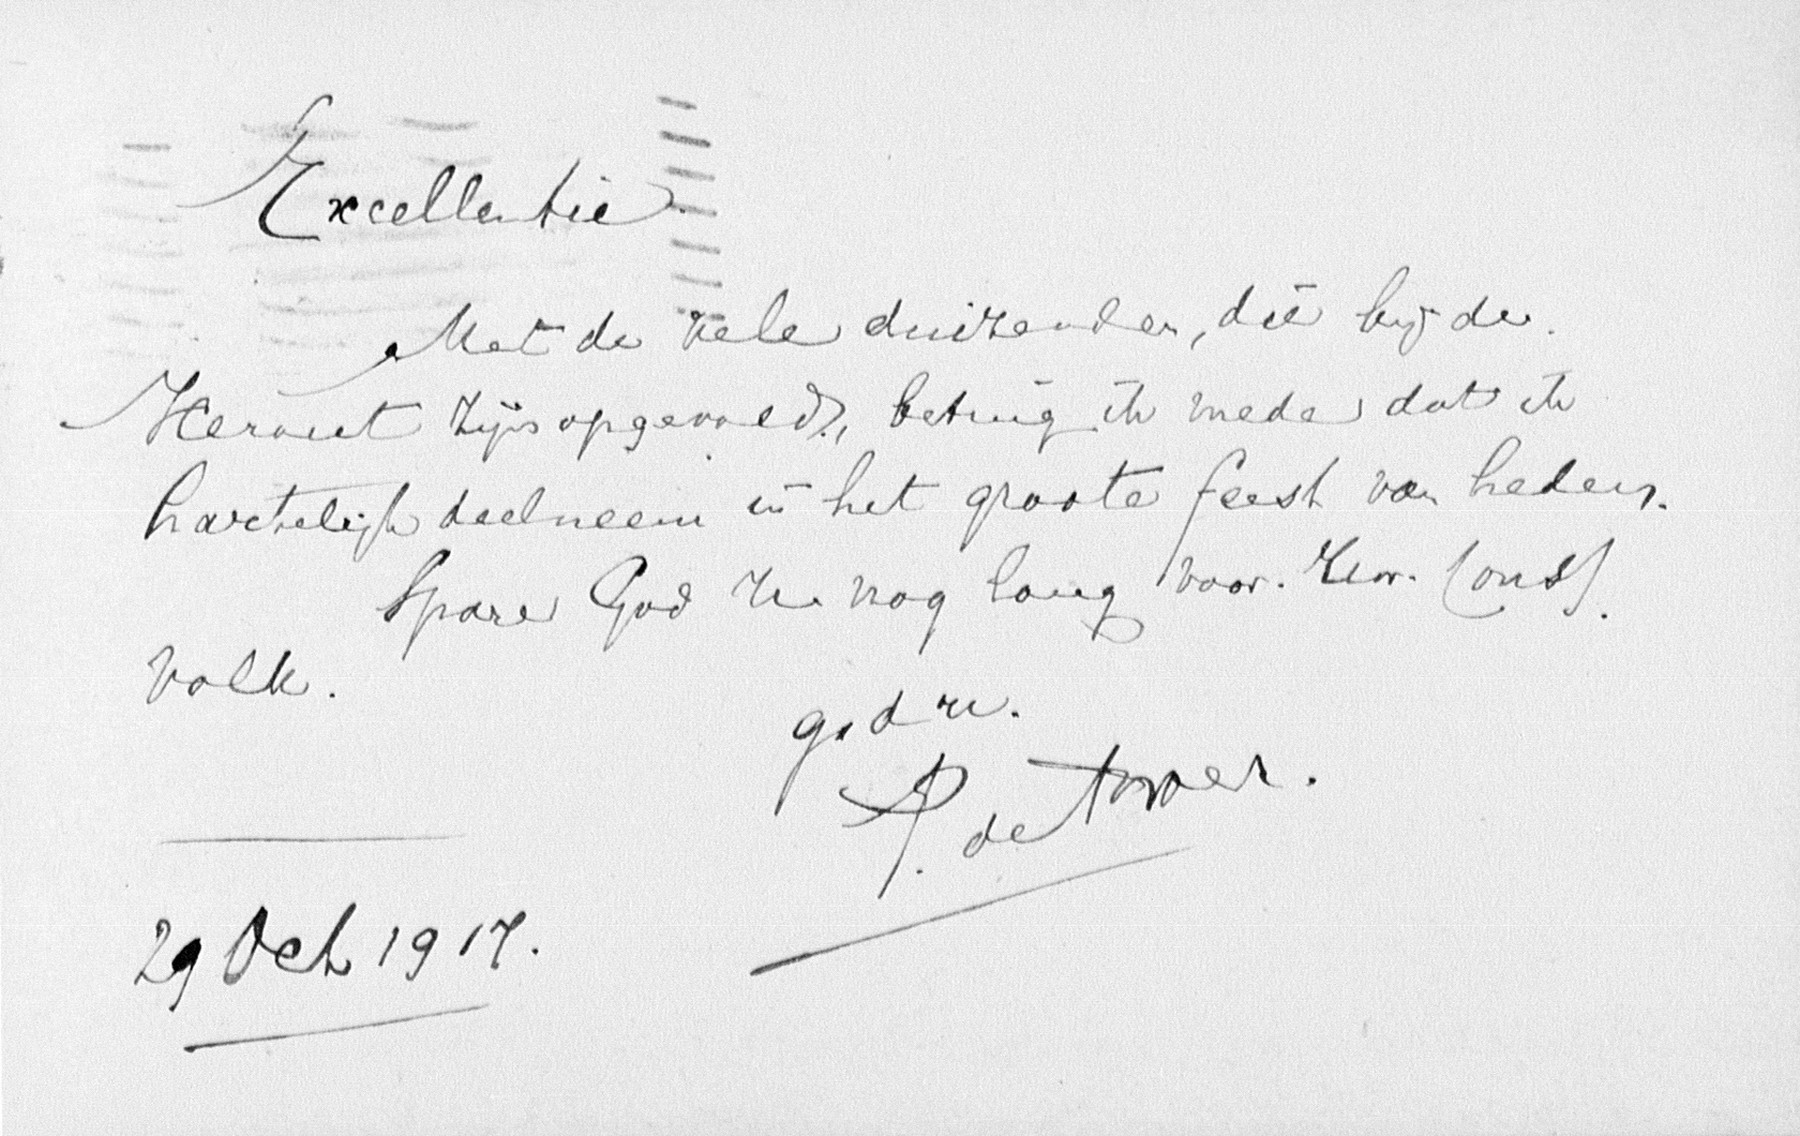 Excellentie.
Met de vele duizenden, die bij de
Heraut zijn opgevoed, betuig ik mede dat ik
hartelijk deelneem in het groote feest van heden.
Spare God U nog lang voor Uw (ons)
volk.
29 Oct 1917.
P. de